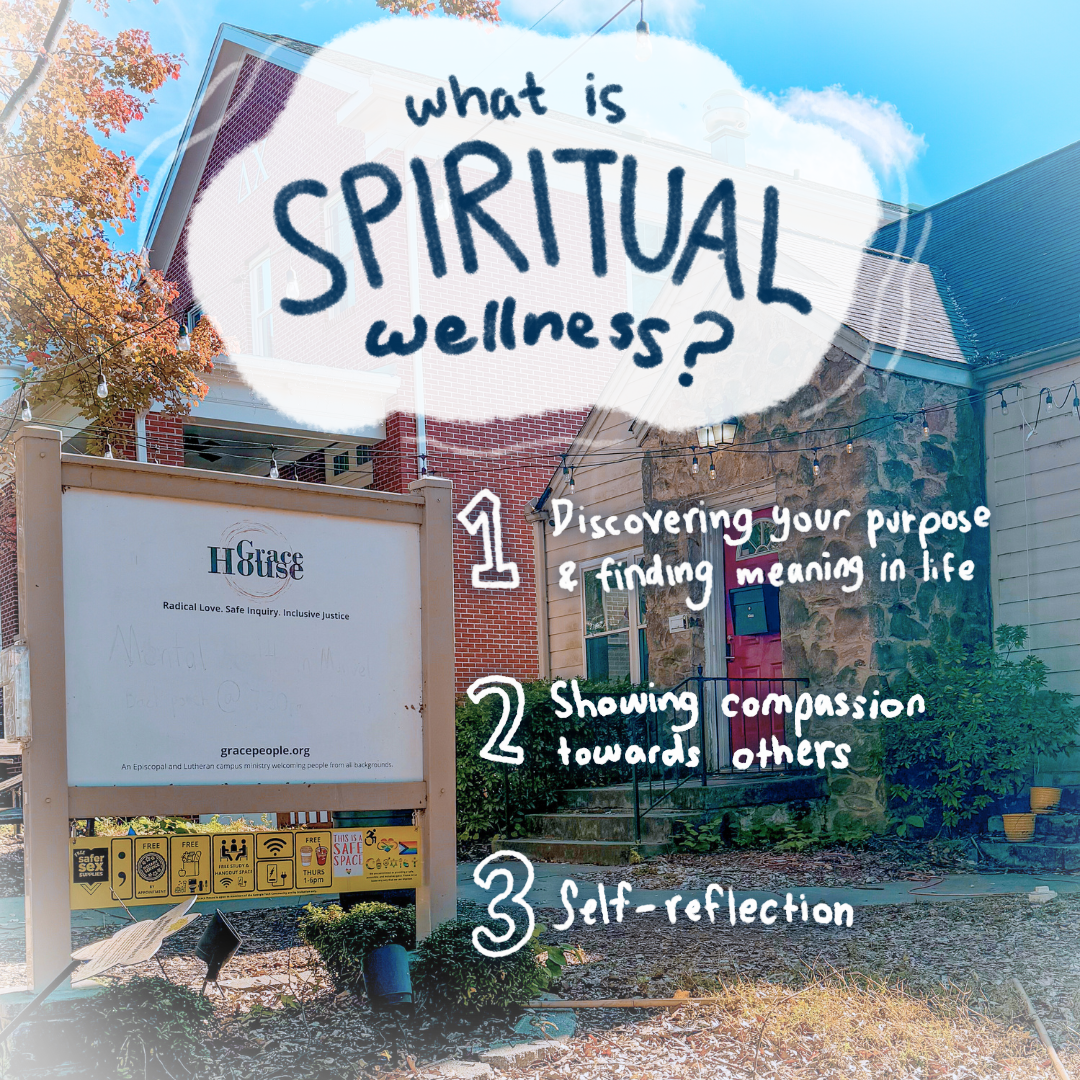 what is
SPIRITUAL
wellness?
1 Discovering your purpose
& finding meaning in life
2 Showing compassion
towards others
3 Self-reflection
Grace
House
Radical Love. Safe Inquiry. Inclusive Justice
Mental
gracepeople.org
An Episcopal and Lutheran campus ministry welcoming people from all backgrounds.
safer
sex
SUPPLIES
FREE
BY
APPOINTMENT
FREE
FREE STUDY &
HANGOUT SPACE
FREE
THURS
1-6pm
THIS IS A
SAFE
SPACE